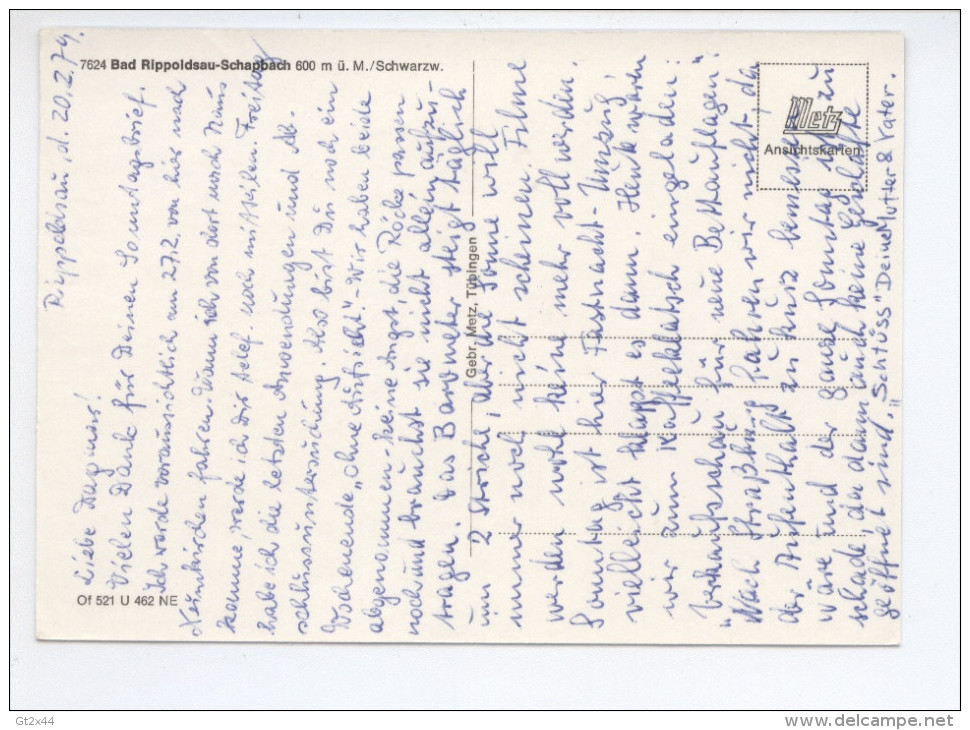 7624 Bad Rippoldsau-Schapbach 600 m ü. M./Schwarzw.
Metz
Ansichtskarten
Gebr. Metz, Tübingen
Of 521 U 462 NE
Rippoldsau, d. 20.2.79.
Liebe Dagmar!
Vielen Dank für Deinen Sonntagsbrief.
Ich werde voraussichtlich am 27.2. von hier nach
Neunkirchen fahren. Wann ich von dort nach Haus
komme, werde ich Dir telef. noch mitteilen. Freitag
habe ich die letzten Anwendungen und Ab-
schlussuntersuchung. Also bist Du noch ein
Wochenende "ohne Aufsicht". - Wir haben beide
abgenommen - keine Angst, die Röcke passen
noch und brauchst sie nicht allein aufzu-
tragen. Das Barometer steigt täglich
um 2 Striche, aber die Sonne will
immer noch nicht scheinen. Filme
werden wohl keine mehr voll werden.
Sonntag ist hier Fastnacht-Umzug,
vielleicht klappt es dann. Heute waren
wir zum Kaffeeklatsch eingeladen:
Verkaufsschau für neue Bettauflagen.
Nach Straßburg fahren wir nicht, da
der Aufenthalt zu kurz bemessen
wäre und der ganze Sonntag zu
schade da dann auch keine Geschäfte
geöffnet sind. "Schtüss" Deine Mutter & Vater.
Gt2x44
delcampe.net